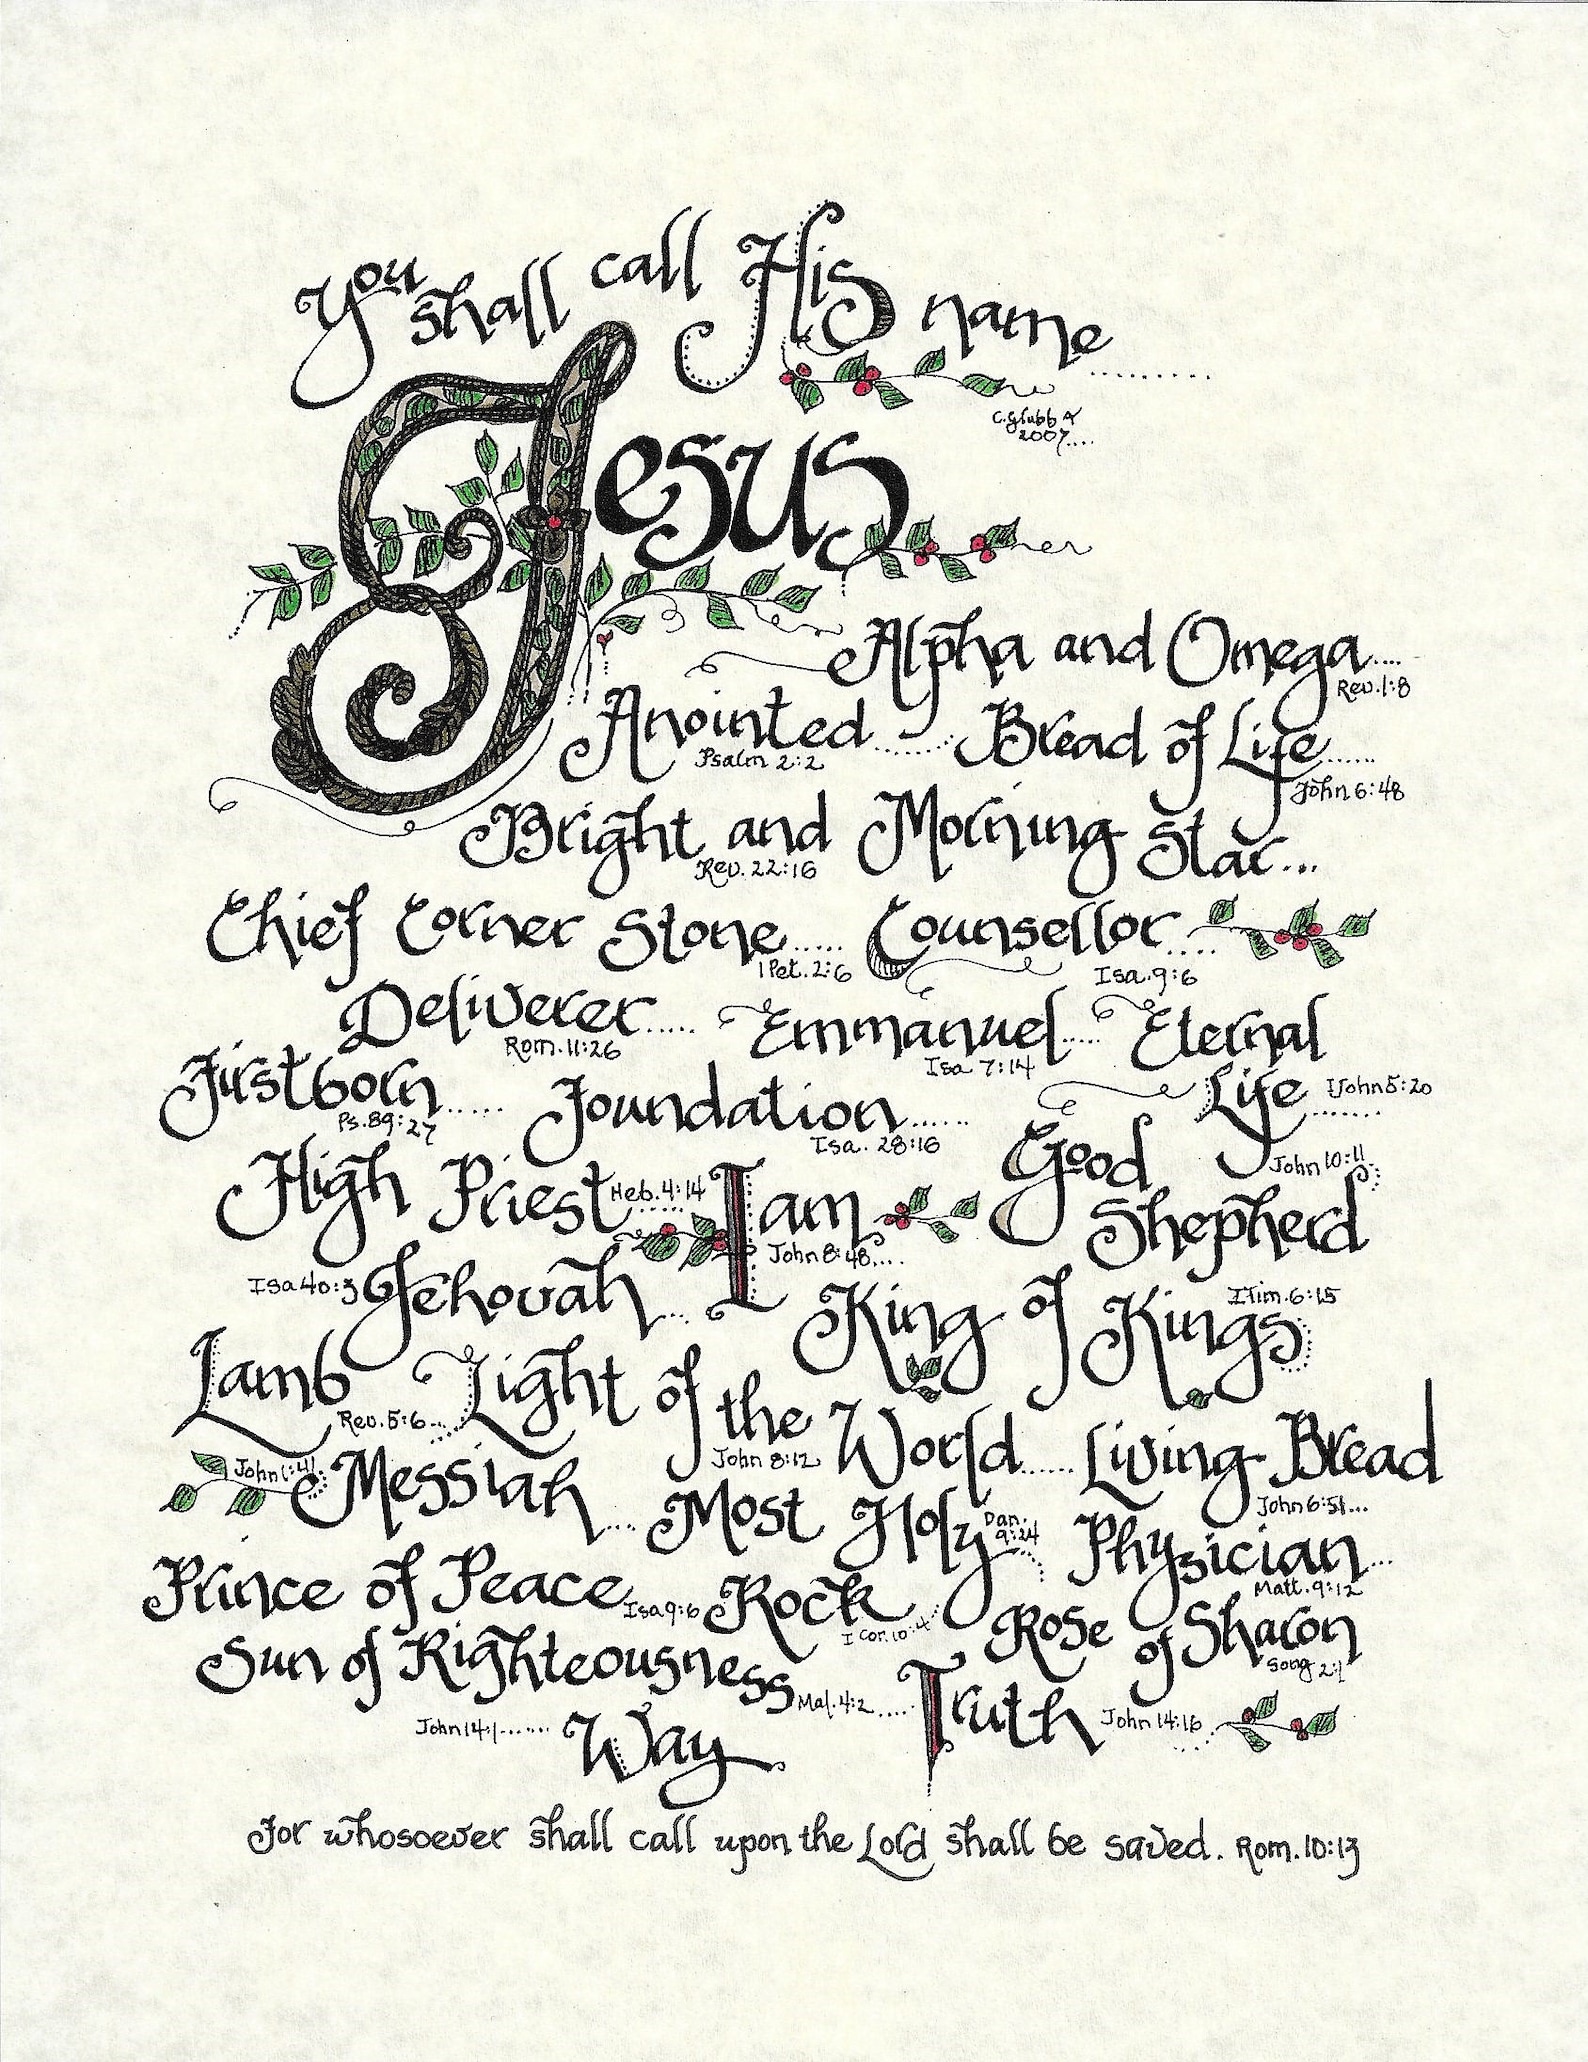 You shall call His name.........
C. Glubb
2007....
Jesus
Alpha and Omega....
Rev.1:8
Anointed....... Bread of Life......
Psalm 2:2
John 6:48
Bright and Morning Star...
Rev. 22:16
Chief Corner Stone..... Counsellor....
1 Pet. 2:6
Isa. 9:6
Deliverer..... Emmanuel..... Eternal
Rom. 11:26
Isa 7:14
Life 1John 5:20
Firstborn...... Foundation......
Ps. 89:27
Isa. 28:16
High Priest Heb. 4:14 I am Good
John 10:11
Shepherd
John 8:48....
Isa 40:3 Jehovah... King of Kings
I Tim. 6:15
Lamb Light of the World...... Living Bread
Rev. 5:6...
John 8:12
John 6:51...
John 1:41 Messiah.... Most Holy Physician...
Dan. 9:24
Matt. 9:12
Prince of Peace Isa 9:6 Rock Rose of Sharon
I Cor. 10:4
Song 2:1
Sun of Righteousness Mal. 4:2 .... Truth John 14:16
John 14:1....... Way
For whosoever shall call upon the Lord shall be saved. Rom. 10:13